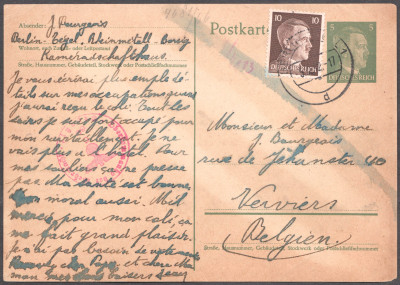 Absender: J. Bourgeois
Berlin-Tegel, Rheinmetall-Borsig
Wohnort, auch Zustell- oder Leitpostamt
Kameradschaftshaus.
Straße, Hausnummer, Gebäudeteil, Stockwerk oder Postschließfachnummer
Je vous écrirai plus amples dé
tails sur mes occupations quand
j'aurai reçu le coli. Tout les
soirs je suis fort occupé pour
mon ravitaillement. Je ne
vais plus à l'hôtel. Pour
mes souliers ça ne presse
pas. Ma santé est bonne,
mon moral aussi. Mil
merci pour mon coli, ça
me fait grand plaisir.
Je n'ai pas besoin de vêtements
mon, mes bons baisers
Postkarte
10 10
DEUTSCHES REICH
5
DEUTSCHES REICH
d
Monsieur et Madame
J. Bourgeois
rue de Jéhanster
Verviers
Belgien
Straße, Hausnummer, Gebäudeteil, Stockwerk oder Postschließfachnummer